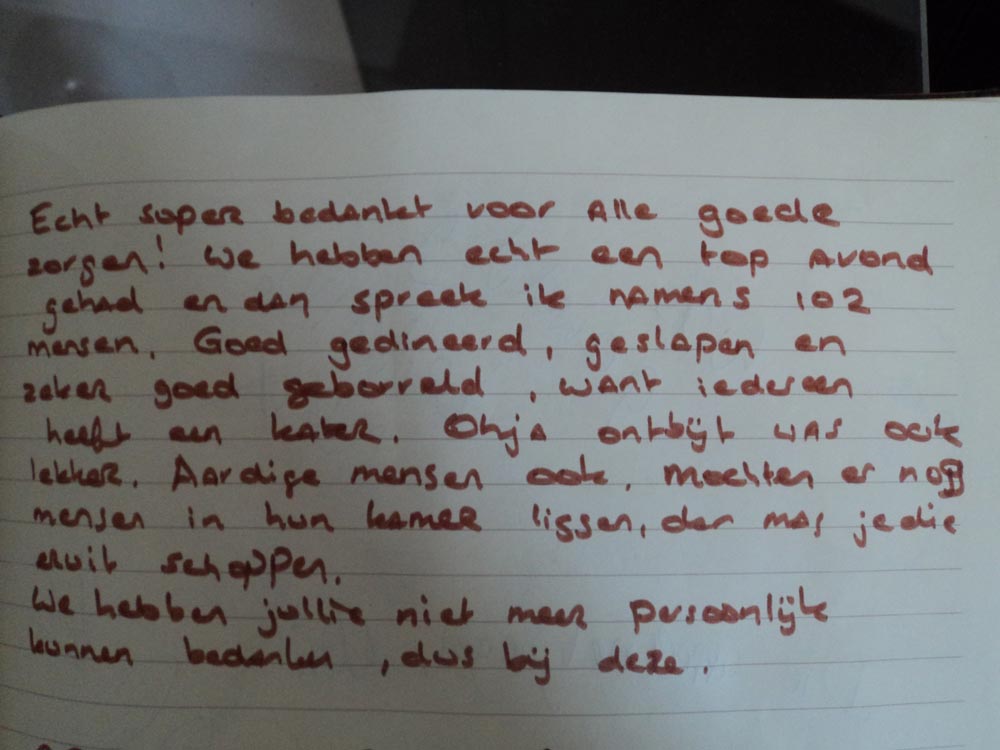 Echt super bedankt voor Alle goede
zorgen! We hebben echt een top Avond
gehad en dan spreek ik namens 102
mensen. Goed gedineerd, geslapen en
zeker goed geborreld, want iedereen
heeft een kater. Ohja ontbijt was ook
lekker. Aardige mensen ook. Mochten er nog
mensen in hun kamer liggen, dan mag je die
eruit schoppen.
We hebben jullie niet meer persoonlijk
kunnen bedanken, dus bij deze.